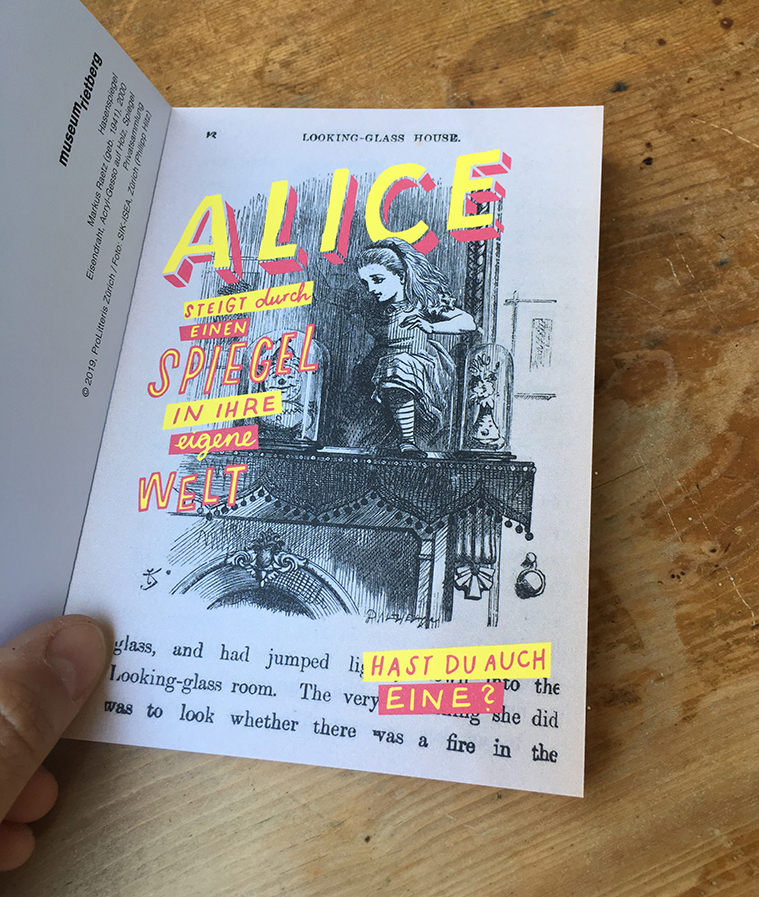 museum rietberg
Hasenspiegel
Markus Raetz (geb. 1941), 2000
Eisendraht, Acryl-Gesso auf Holz, Spiegel
Privatsammlung
© 2019, ProLitteris, Zürich / Foto: SIK-ISEA, Zürich (Philipp Hitz)
LOOKING-GLASS HOUSE.
ALICE
STEIGT durch
EINEN
SPIEGEL
IN IHRE
eigene
WELT
glass, and had jumped
HAST DU AUCH
into the
Looking-glass room. The very
EINE?
she did
was to look whether there was a fire in the